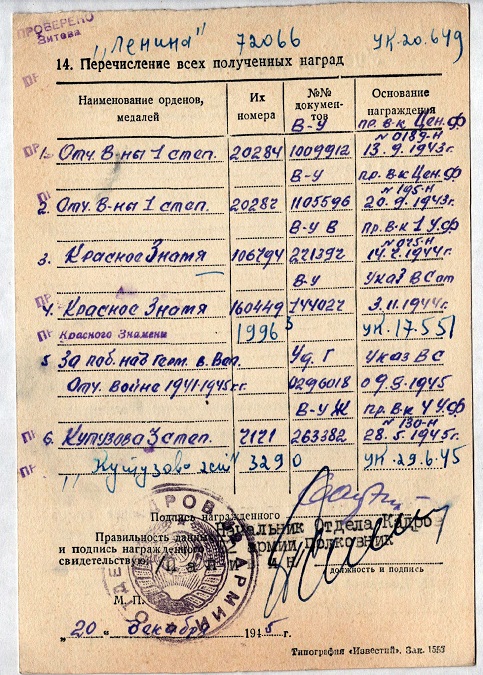 ПРОВЕРЕНО
„Ленина" 72066 УК-20.649
14. Перечисление всех полученных наград
Наименование орденов, медалей Их номера №№ документов Основание награждения
В-У пр. в-к Цен.Ф
№ 0189-н
1. Отч. В-ны 1 степ. 20284 1009912 13.9.1943г.
В-У пр. в-к Цен.Ф
№ 195-н
2. Отч. В-ны 1 степ. 20282 1105596 20.9.1943г.
В-У В пр. В-к 1 У.Ф
№ 025-н
3. Красное Знамя 106794 221392 14.2.1944г.
В-У Указ ВС от
4. Красное Знамя 160449 744022 3.11.1944г.
Красного Знамени 1996 УК-17.551
5 За поб. над Герм. в Вел. Уд. Г Указ ВС
Отч. война 1941-1945г.г. 0296018 09.9.1945
В-У Ж пр. В-к 4 У.Ф
№ 130-н
6. Кутузова 3 степ. 2121 263382 28.5.1945г.
„Кутузова 3ст" 3290 УК-29.6.45
Подпись награжденного
Начальник Отдела Кадров
Правильность данных
и подпись награжденного
свидетельствую:
армии полковник
должность и подпись
М. П.
„20" декабря 1945 г.
Типография «Известий». Зак. 1555